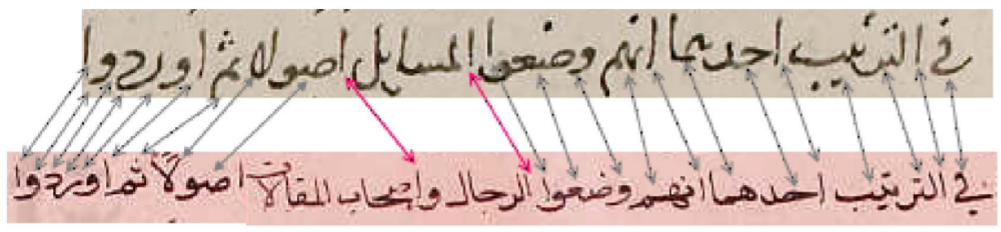 في الترتيب احديهما انهم وضعوا المسايل اصولا ثم اوردوا
في الترتيب احدهما انهم وضعوا الرجال واصحاب المقالات اصولاً ثم اوردوا